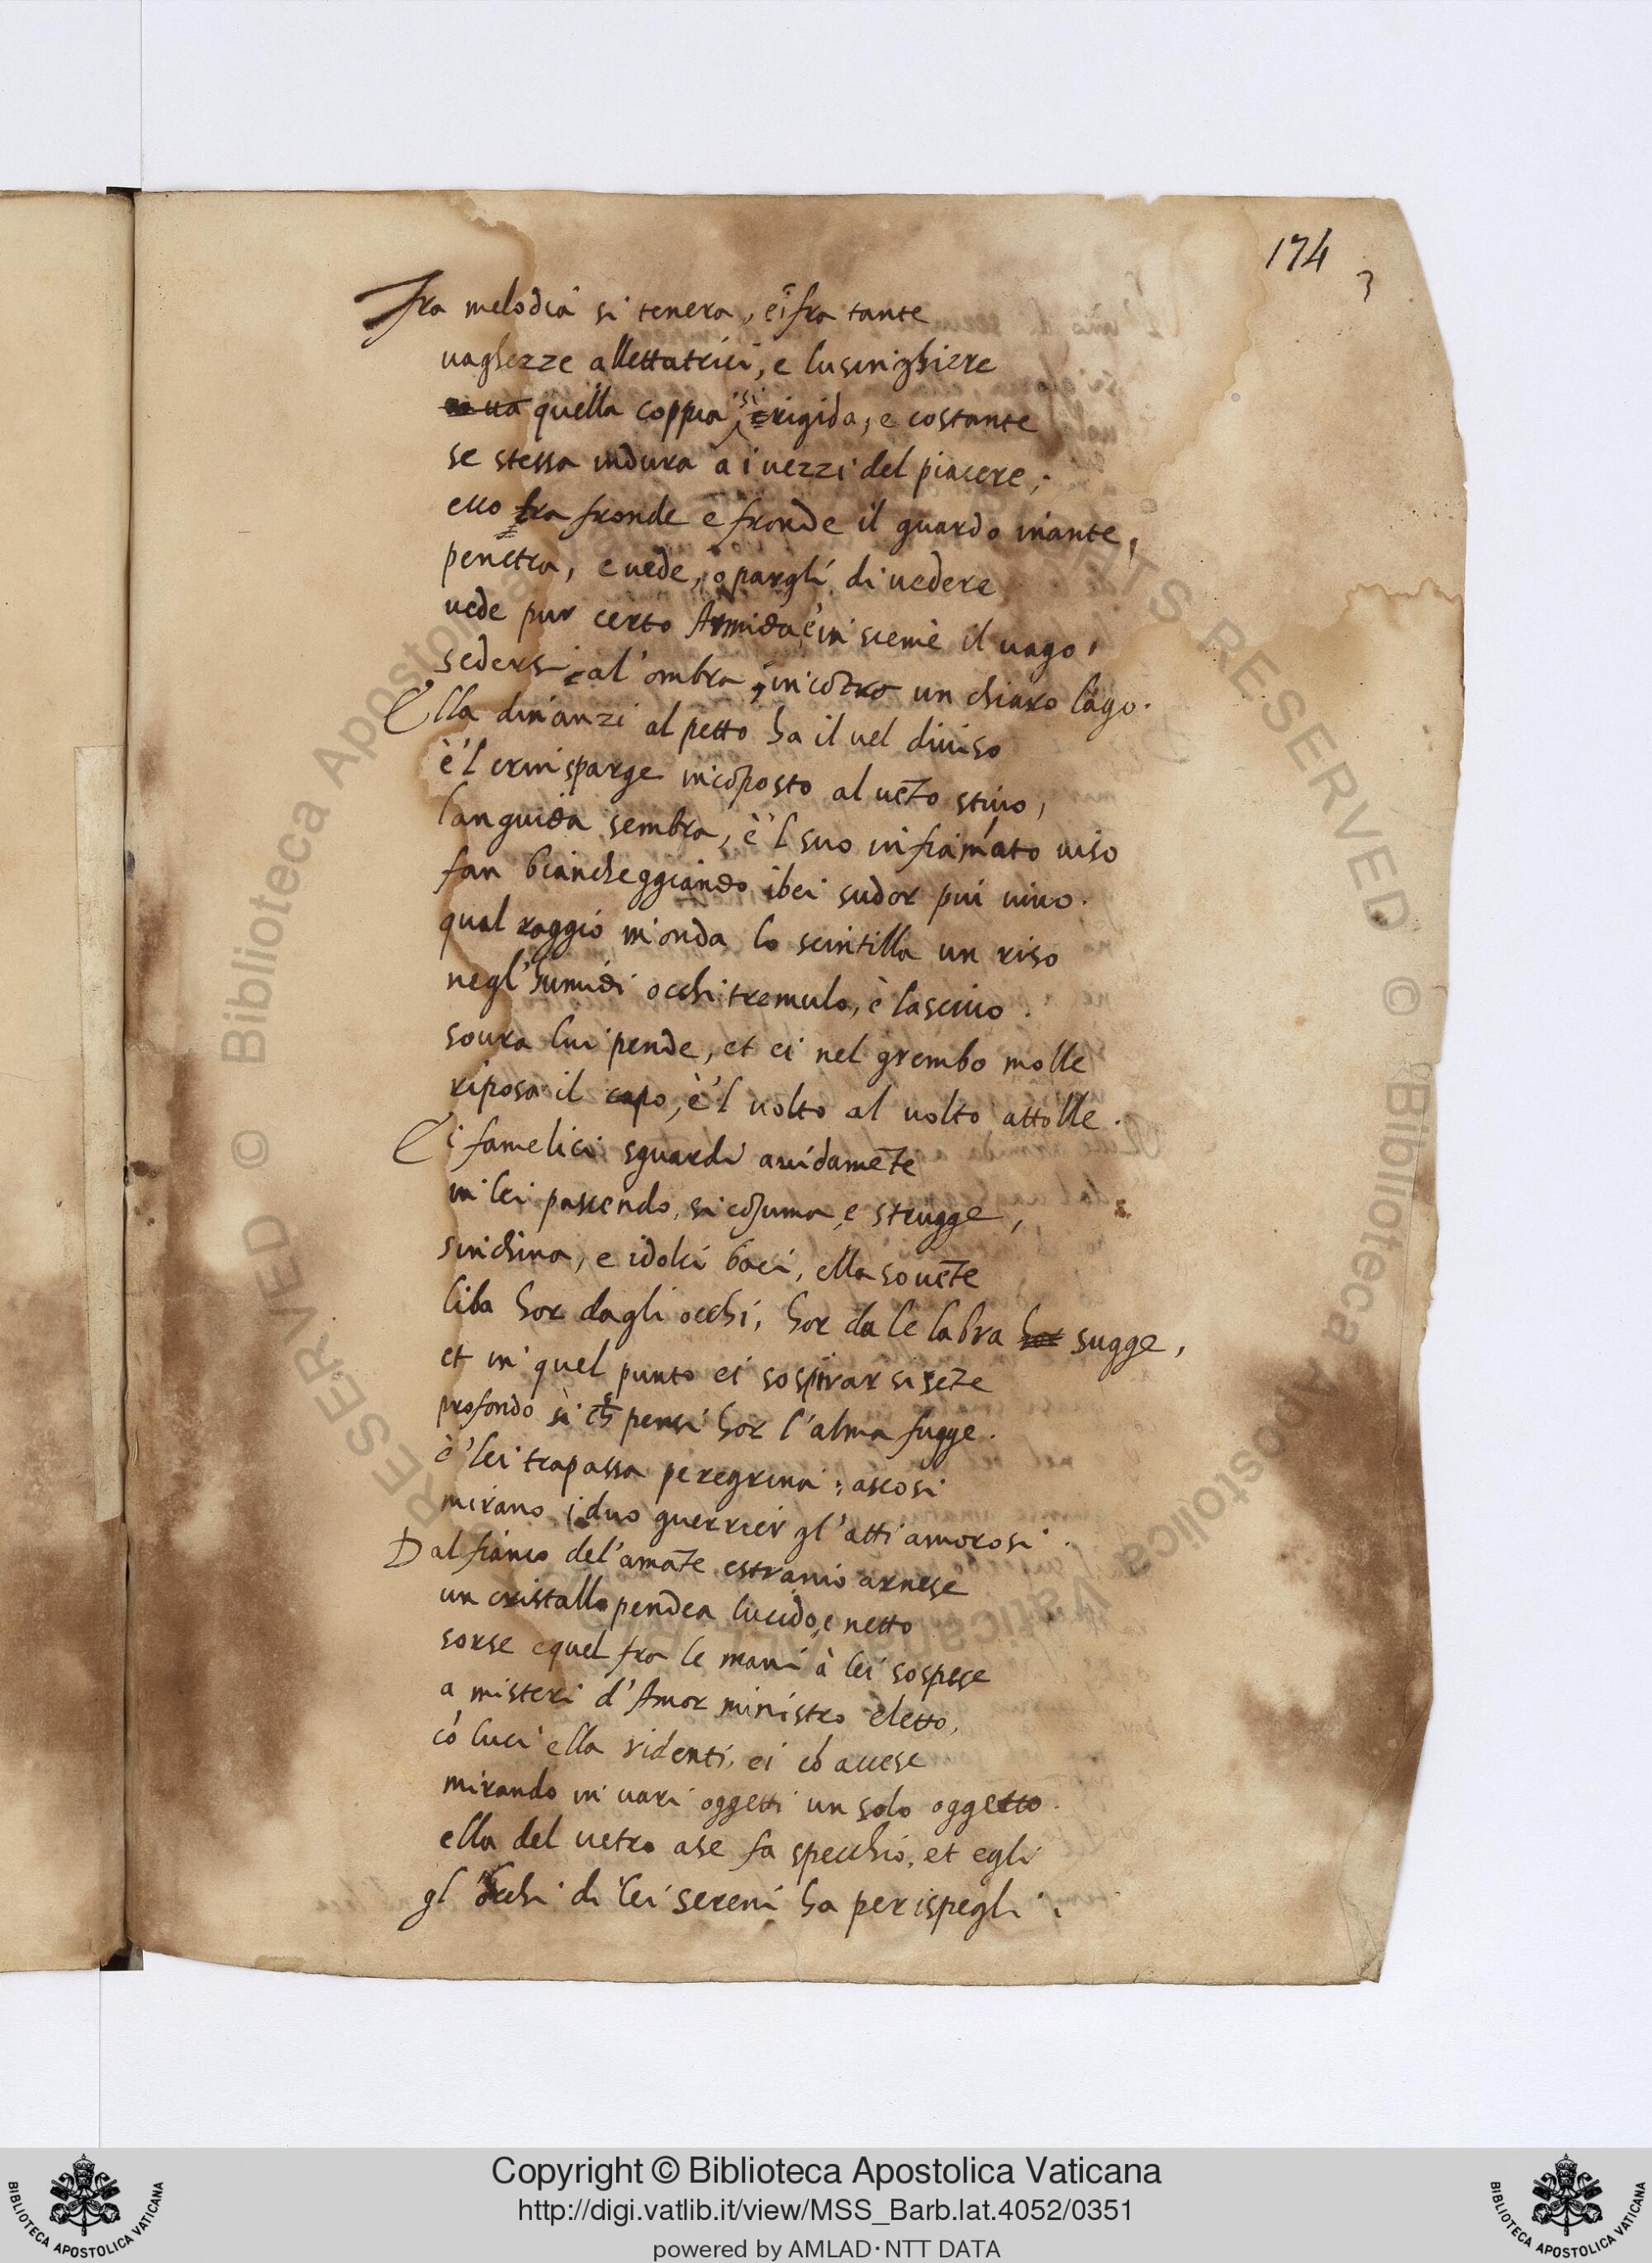 174
3
Fra melodia si tenera, e fra tante
uaghezze allettatrici, e lusinghiere
quella coppia si rigida, e costante
se stessa indura a i uezzi del piacere;
ecco tra fronde e fronde il guardo inante,
penetra, e uede, o pargli di uedere
uede pur certo Armida, e'insieme il uago,
sedersi al'ombra, incōtro un chiaro lago.
Ella dinanzi al petto ha il uel diuiso
è'l crin sparge incōposto al uēto stiuo,
languida sembra, è'l suo infiamato uiso
fan biancheggiando i bei sudor piu uiuo.
qual raggio in onda lo scintilla un riso
negl'humidi occhi tremulo, è lasciuo.
soura lui pende, et ei nel grembo molle
riposa il capo, è'l uolto al uolto attolle.
E i famelici sguardi auidamēte
in lei pascendo, si cōsuma, e strugge,
sinchina, e i dolci baci, ella souēte
liba hor dagli occhi, hor da le labra hor sugge,
et in quel punto ei sospirar si sēte
profondo sì ch pensi hor l'alma fugge.
è'lei trapassa peregrina: ascosi
mirano i duo guerrier gl'atti amorosi.
Dal fianco del'amāte estranio arnese
un cristallo pendea lucido, e netto
sorse e quel fra le mani à lei sospese
a misteri d'Amor ministro eletto,
cō luci ella ridenti, ei cō accese
mirando in uari oggetti un solo oggetto.
ella del uetro a se fa specchio, et egli
gl'occhi di lei sereni ha per ispegli.
Copyright © Biblioteca Apostolica Vaticana
http://digi.vatlib.it/view/MSS_Barb.lat.4052/0351
powered by AMLAD·NTT DATA
BIBLIOTECA APOSTOLICA VATICANA
BIBLIOTECA APOSTOLICA VATICANA